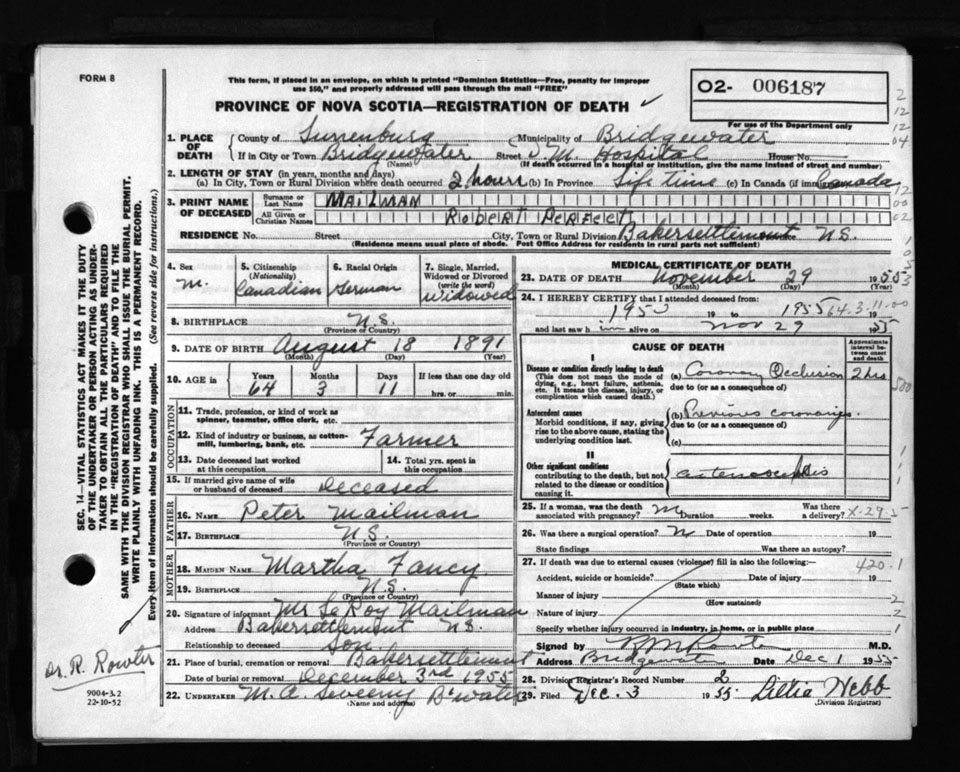 FORM 8
This form, if placed in an envelope, on which is printed "Dominion Statistics—Free, penalty for improper
use $50," and properly addressed will pass through the mail "FREE"
PROVINCE OF NOVA SCOTIA—REGISTRATION OF DEATH ✓
02- 006187
For use of the Department only
1. PLACE OF DEATH
County of Lunenburg Municipality of Bridgewater
If in City or Town Bridgewater Street D. M. Hospital House No.
(Name) (If death occurred in a hospital or institution, give the name instead of street and number)
2. LENGTH OF STAY (in years, months and days)
(a) In City, Town or Rural Division where death occurred 2 hours (b) In Province Life time (c) In Canada (if immigrant) Canada
3. PRINT NAME OF DECEASED
Surname or Last Name MAILMAN
All Given or Christian Names ROBERT PERFECT
RESIDENCE No. Street City, Town or Rural Division Bakersettlement N.S.
(Residence means usual place of abode. Post Office Address for residents in rural parts not sufficient)
4. Sex
M.
5. Citizenship (Nationality)
Canadian
6. Racial Origin
German
7. Single, Married, Widowed or Divorced (write the word)
Widowed
8. BIRTHPLACE N.S.
(Province or Country)
9. DATE OF BIRTH August 18 1891
(Month) (Day) (Year)
10. AGE in Years Months Days If less than one day old
64 3 11 hrs. or min.
OCCUPATION
11. Trade, profession, or kind of work as
spinner, teamster, office clerk, etc.
12. Kind of industry or business, as cotton-
mill, lumbering, bank, etc. Farmer
13. Date deceased last worked
at this occupation
14. Total yrs. spent in
this occupation
15. If married give name of wife
or husband of deceased Deceased
FATHER
16. NAME Peter Mailman
17. BIRTHPLACE N.S.
(Province or Country)
MOTHER
18. MAIDEN NAME Martha Fancy
19. BIRTHPLACE N.S.
(Province or Country)
20. Signature of informant Mr LeRoy Mailman
Address Bakersettlement N.S.
Relationship to deceased Son.
21. Place of burial, cremation or removal Bakersettlement
Date of burial or removal December 3rd 1955
22. UNDERTAKER M.A. Sweeny B'water
(Name and address)
MEDICAL CERTIFICATE OF DEATH
23. DATE OF DEATH November 29 1955
(Month) (Day) (Year)
24. I HEREBY CERTIFY that I attended deceased from:
1953 19 to 1955 64.3.11.00 19
and last saw him alive on Nov 29 1955
CAUSE OF DEATH
Approximate interval between onset and death
I
Disease or condition directly leading to death
(This does not mean the mode of
dying, e.g., heart failure, asthenia,
etc. It means the disease, injury, or
complication which caused death.)
(a) Coronary Occlusion 2 hrs
due to (or as a consequence of)
Antecedent causes
Morbid conditions, if any, giving
rise to the above cause, stating the
underlying condition last.
(b) Previous coronaries.
due to (or as a consequence of)
(c)
II
Other significant conditions
contributing to the death, but not
related to the disease or condition
causing it.
25. If a woman, was the death
associated with pregnancy? Duration weeks. Was there a delivery? X-29-5
26. Was there a surgical operation? N Date of operation 19
State findings Was there an autopsy?
27. If death was due to external causes (violence) fill in also the following:— 420.1
Accident, suicide or homicide? Date of injury 19
(State which)
Manner of injury
(How sustained)
Nature of injury
Specify whether injury occurred in industry, in home, or in public place
Signed by M.D.
Address Bridgewater Date Dec 1 1955
28. Division Registrar's Record Number 2
29. Filed Dec. 3 1955 Lillia Webb
(Division Registrar)
SEC. 14—VITAL STATISTICS ACT MAKES IT THE DUTY
OF THE UNDERTAKER OR PERSON ACTING AS UNDER-
TAKER TO OBTAIN ALL THE PARTICULARS REQUIRED
IN THE "REGISTRATION OF DEATH" AND TO FILE THE
SAME WITH THE DIVISION REGISTRAR WHO SHALL ISSUE THE BURIAL PERMIT.
WRITE PLAINLY WITH UNFADING INK. THIS IS A PERMANENT RECORD.
Every item of information should be carefully supplied. (See reverse side for instructions.)
Dr. R. Rowter
9004-3.2
22-10-52